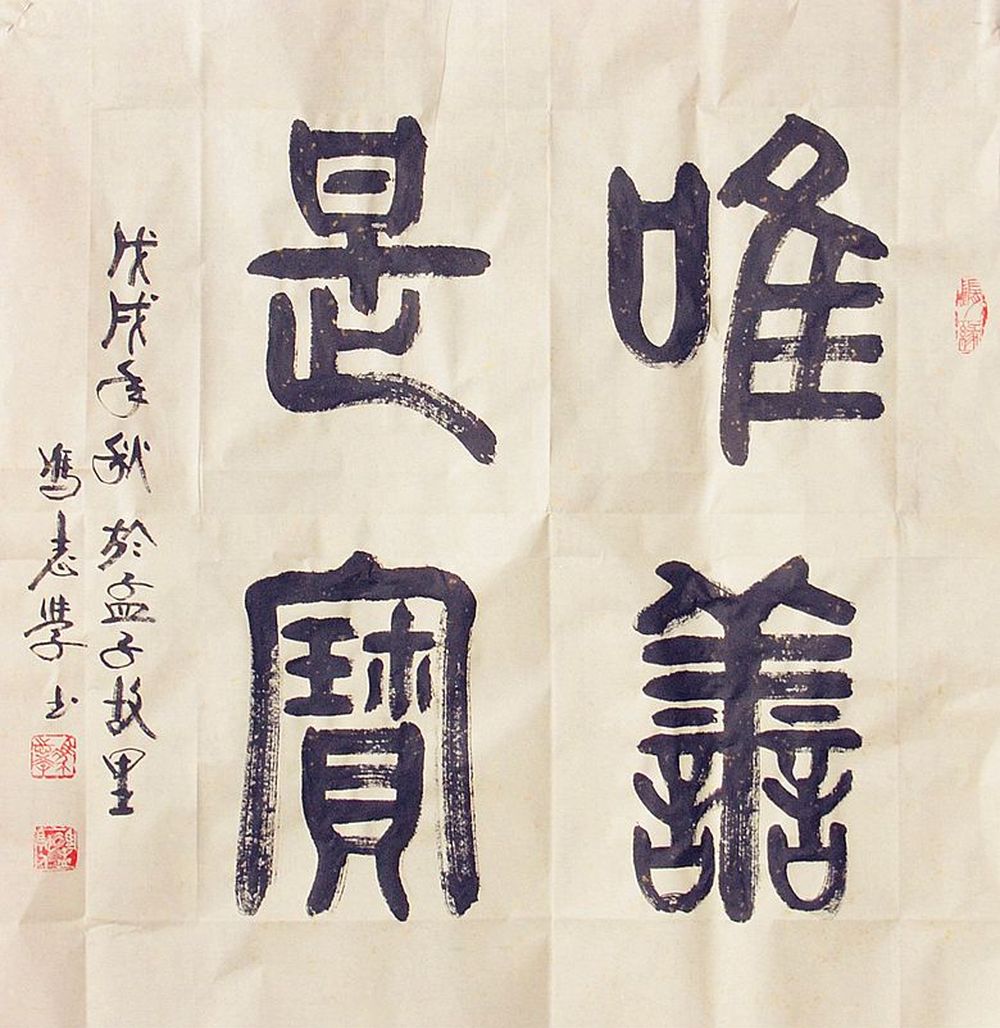 唯善
是寶
戊戌年秋於孟子故里
馮志學书